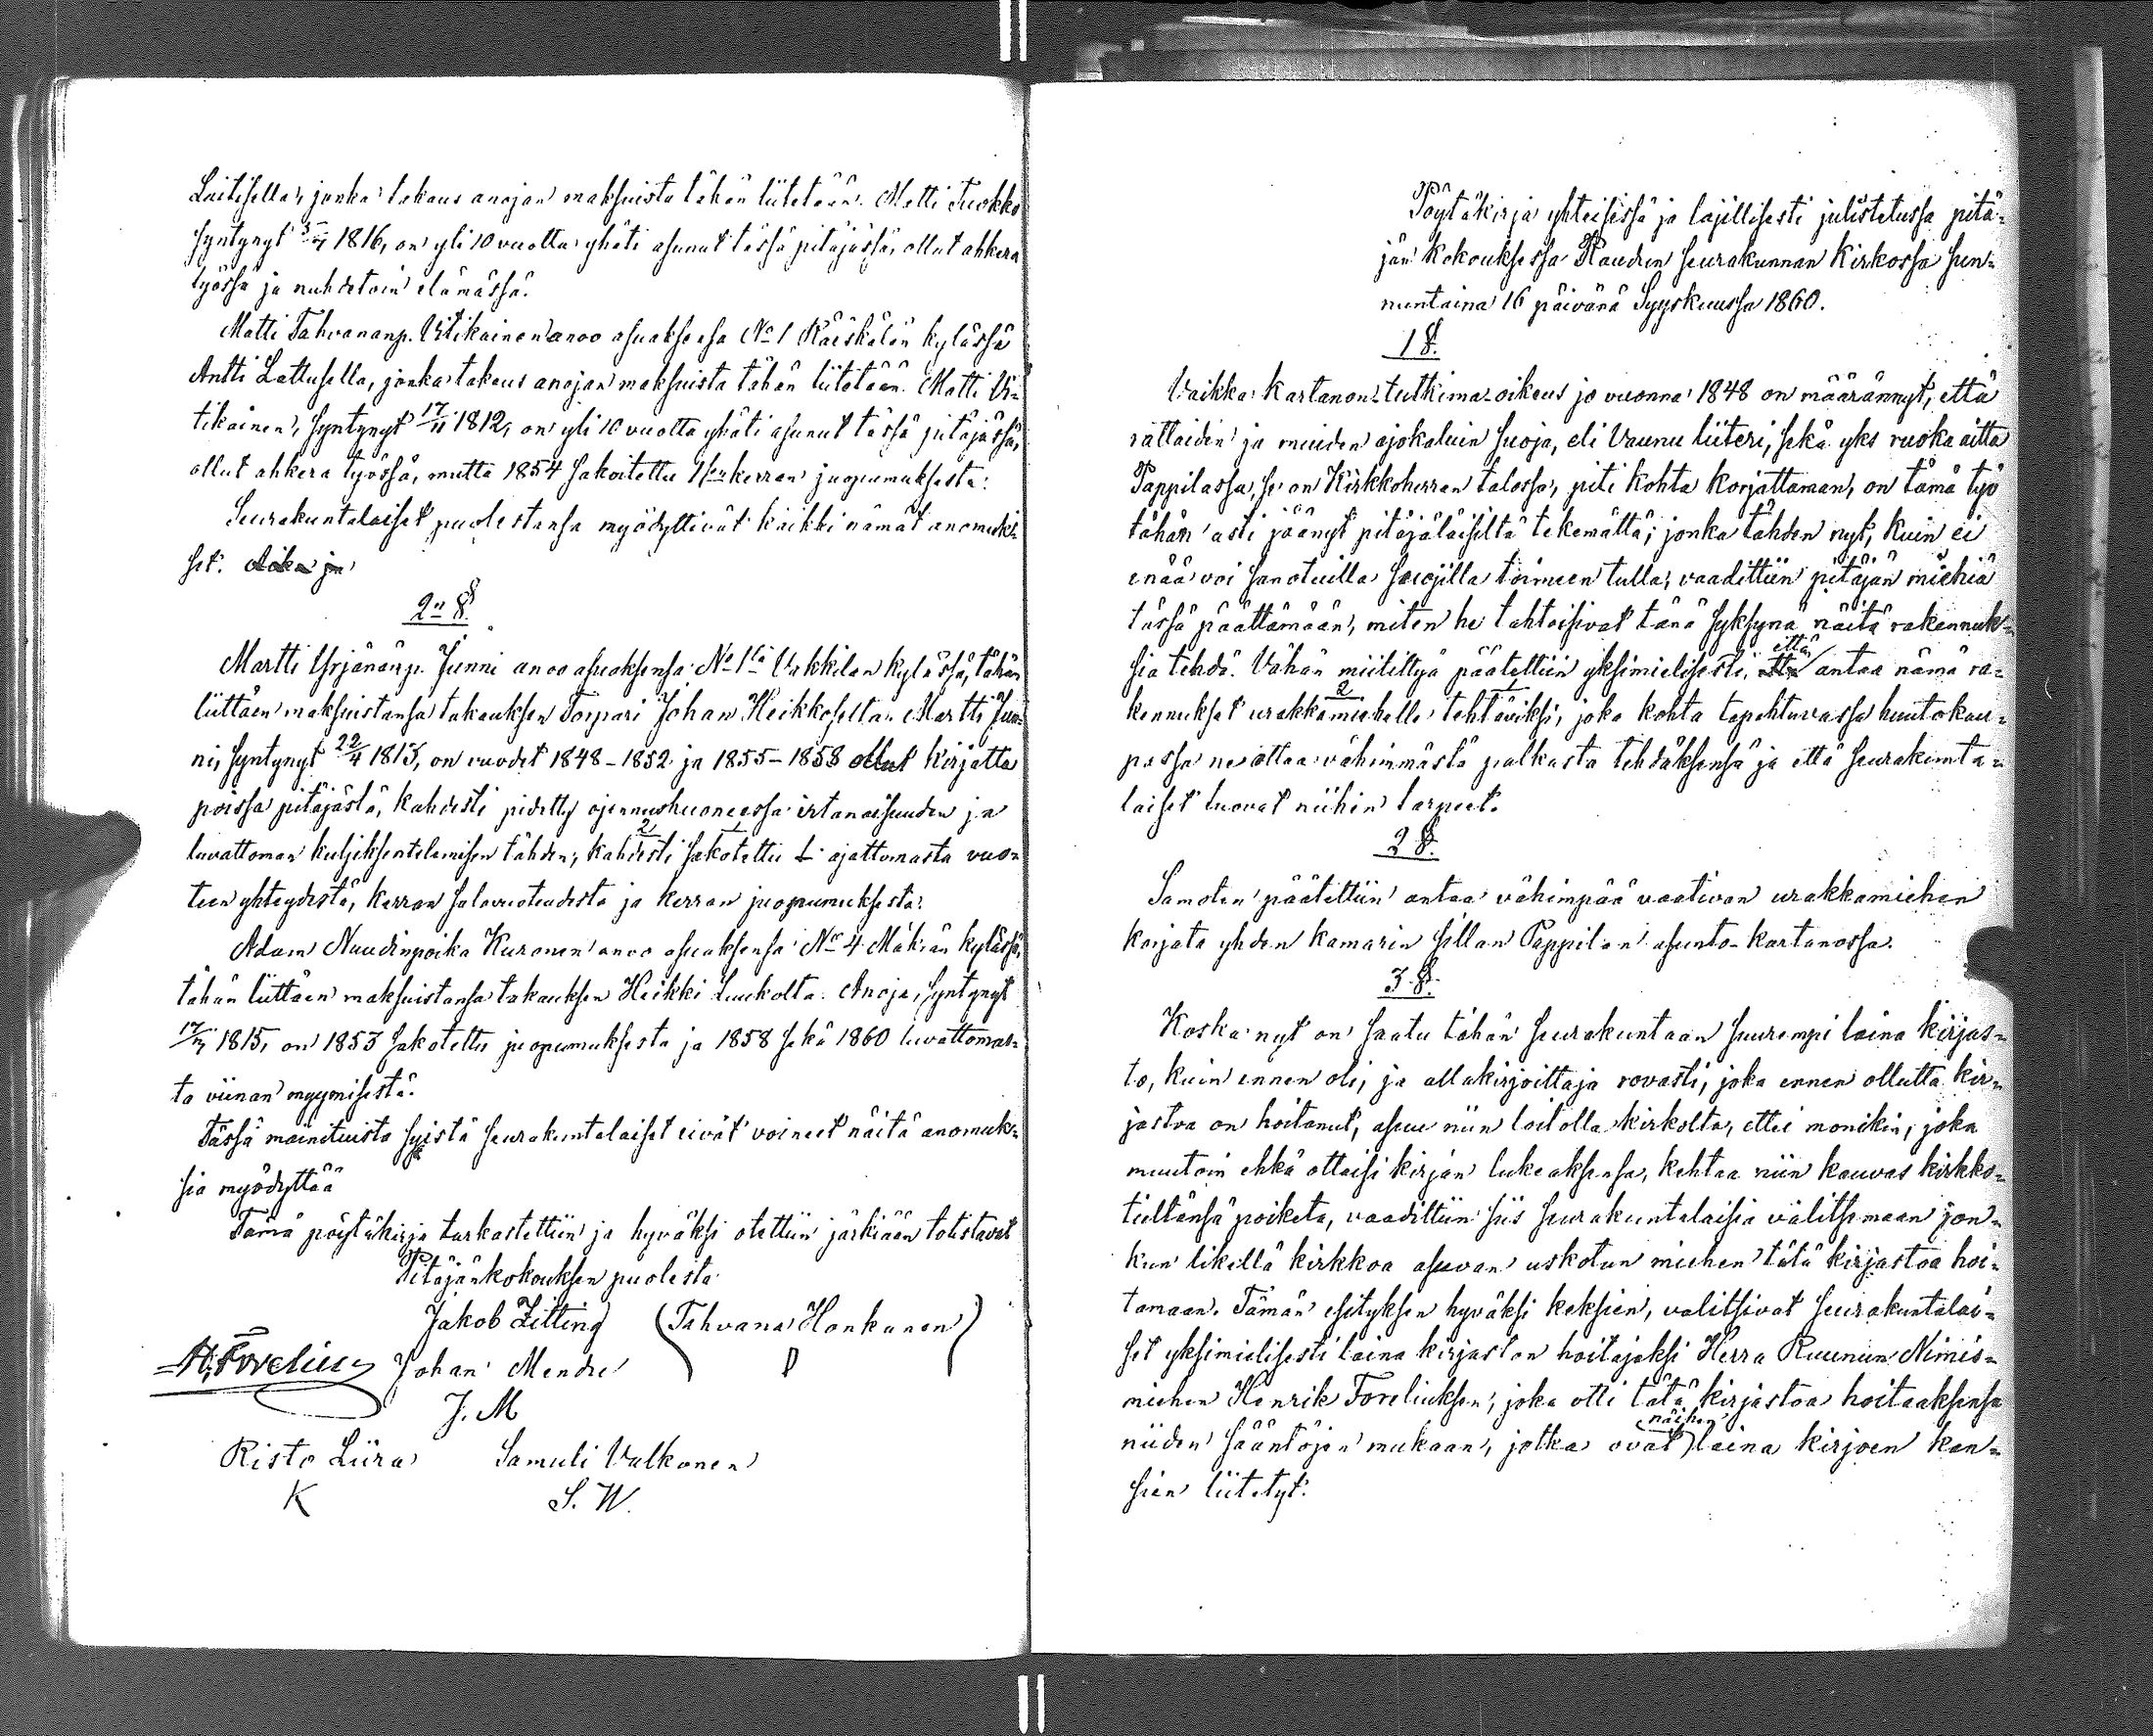 Laitisella, jonka takaus anojan maksuista tähän liitetään. Matti Tuokko
syntynyt 1816, on yli 10 vuotta yhäti asunut tässä pitäjässä, ollut ahkera
työssä ja nuhdetoin elämässä.
Matti Tahvananp. Utikainen anoo asuaksensa No 1 Räiskälän kylässä
Antti Lattusella, jonka takaus anojan maksuista tähän liitetään. Matti U-
tikainen, syntynyt 17/11 1812, on yli 10 vuotta yhäti asunut tässä pitäjässä,
ollut ahkera työssä, mutta 1854 sakoitettu kerran juopumuksesta.
Seurakuntalaiset puolestansa myödyttivät kaikki nämät anomuk-
set.
2n §
Martti Yrjänänp. Junni anoo asuaksensa No 1 Vakkilan kylässä, tähän
liittäen maksuistansa takauksen Torpari Johan Heikkoselta. Martti Jun-
ni, syntynyt 22/4 1813, on vuodet 1848-1852 ja 1855-1858 ollut kirjatta
poissa pitäjästä, kahdesti pidetty ojennushuoneessa irtanaisuuden ja
luvattoman kuljeksentelemisen tähden, kahdesti sakotettu ajattomasta vuo-
teen yhteydestä, kerran salavuoteudesta ja kerran juopumuksesta.
Adam Nuudinpoika Kuronen anoo asuaksensa No 4 Mäkrän kylässä,
tähän liittäen maksuistansa takauksen Heikki Luukolta. Anoja, syntynyt
1815, on 1853 sakotettu juopumuksesta ja 1858 sekä 1860 luvattomas-
ta viinan myymisestä.
Tässä mainituista syistä seurakuntalaiset eivät voineet näitä anomuk-
sia myödyttää
Tämä pöytäkirja tarkastettiin ja hyväksi otettiin jäskiään totistavat
Pitäjänkokouksen puolesta
Jakob Zitting (Tahvana Honkanen)
H. Forelius Johan Mendre
J. M
Risto Liira Samuli Valkonen
K S. W.
Pöytäkirja yhteisessä ja lajillisesti julistetussa pitä-
jän kokouksessa Raudun seurakunnan Kirkossa sun-
nuntaina 16 päivänä Syyskuussa 1860.
1 §.
Vaikka kartanon-tutkima-oikeus jo vuonna 1848 on määrännyt, että
rattaiden ja muiden ajokaluin suoja, eli Vaunu liiteri, sekä yks ruoka aitta
Pappilassa, se on Kirkkoherran talossa, piti kohta korjattaman, on tämä työ
tähän asti jäänyt pitäjäläisiltä tekemättä; jonka tähden nyt, kuin ei
enää voi sanotuilla suojilla toimeen tulla, vaadittiin pitäjän miehiä
tässä päättämään, miten he tahtoisivat tänä syksynä näitä rakennuk-
sia tehdä. Vähän miitittyä päätettiin yksimielisesti, että antaa nämä ra-
kennukset urakkamiehelle tehtäviksi, joka kohta tapahtuvassa huutokau-
passa ne ottaa vähimmästä palkasta tehdäksensä ja että seurakunta-
laiset tuovat niihin tarpeet.
2 §.
Samoten päätettiin antaa vähimpää vaativan urakkamiehen
korjata yhden kamarin sillan Pappilan asunto-kartanossa.
3 §.
Koska nyt on saatu tähän seurakuntaan suurempi laina kirjas-
to, kuin ennen oli, ja allakirjoittaja rovasti, joka ennen ollutta kir-
jastoa on hoitanut, asuu niin loitolla kirkolta, ettei monikin, joka
muutoin ehkä ottaisi kirjan lukeaksensa, kehtaa niin kauvas kirkko-
tieltänsä poiketa, vaadittiin siis seurakuntalaisia valitsemaan jon-
kun likellä kirkkoa asuvan uskotun miehen tätä kirjastoa hoi-
tamaan. Tämän esityksen hyväksi keksien, valitsivat seurakuntalai-
set yksimielisesti laina kirjaston hoitajaksi Herra Ruunun Nimis-
miehen Henrik Foreliuksen, joka otti tätä kirjastoa hoitaaksensa
niiden sääntöjen mukaan, jotka ovat näihen laina kirjoen kan-
sien liitetyt.